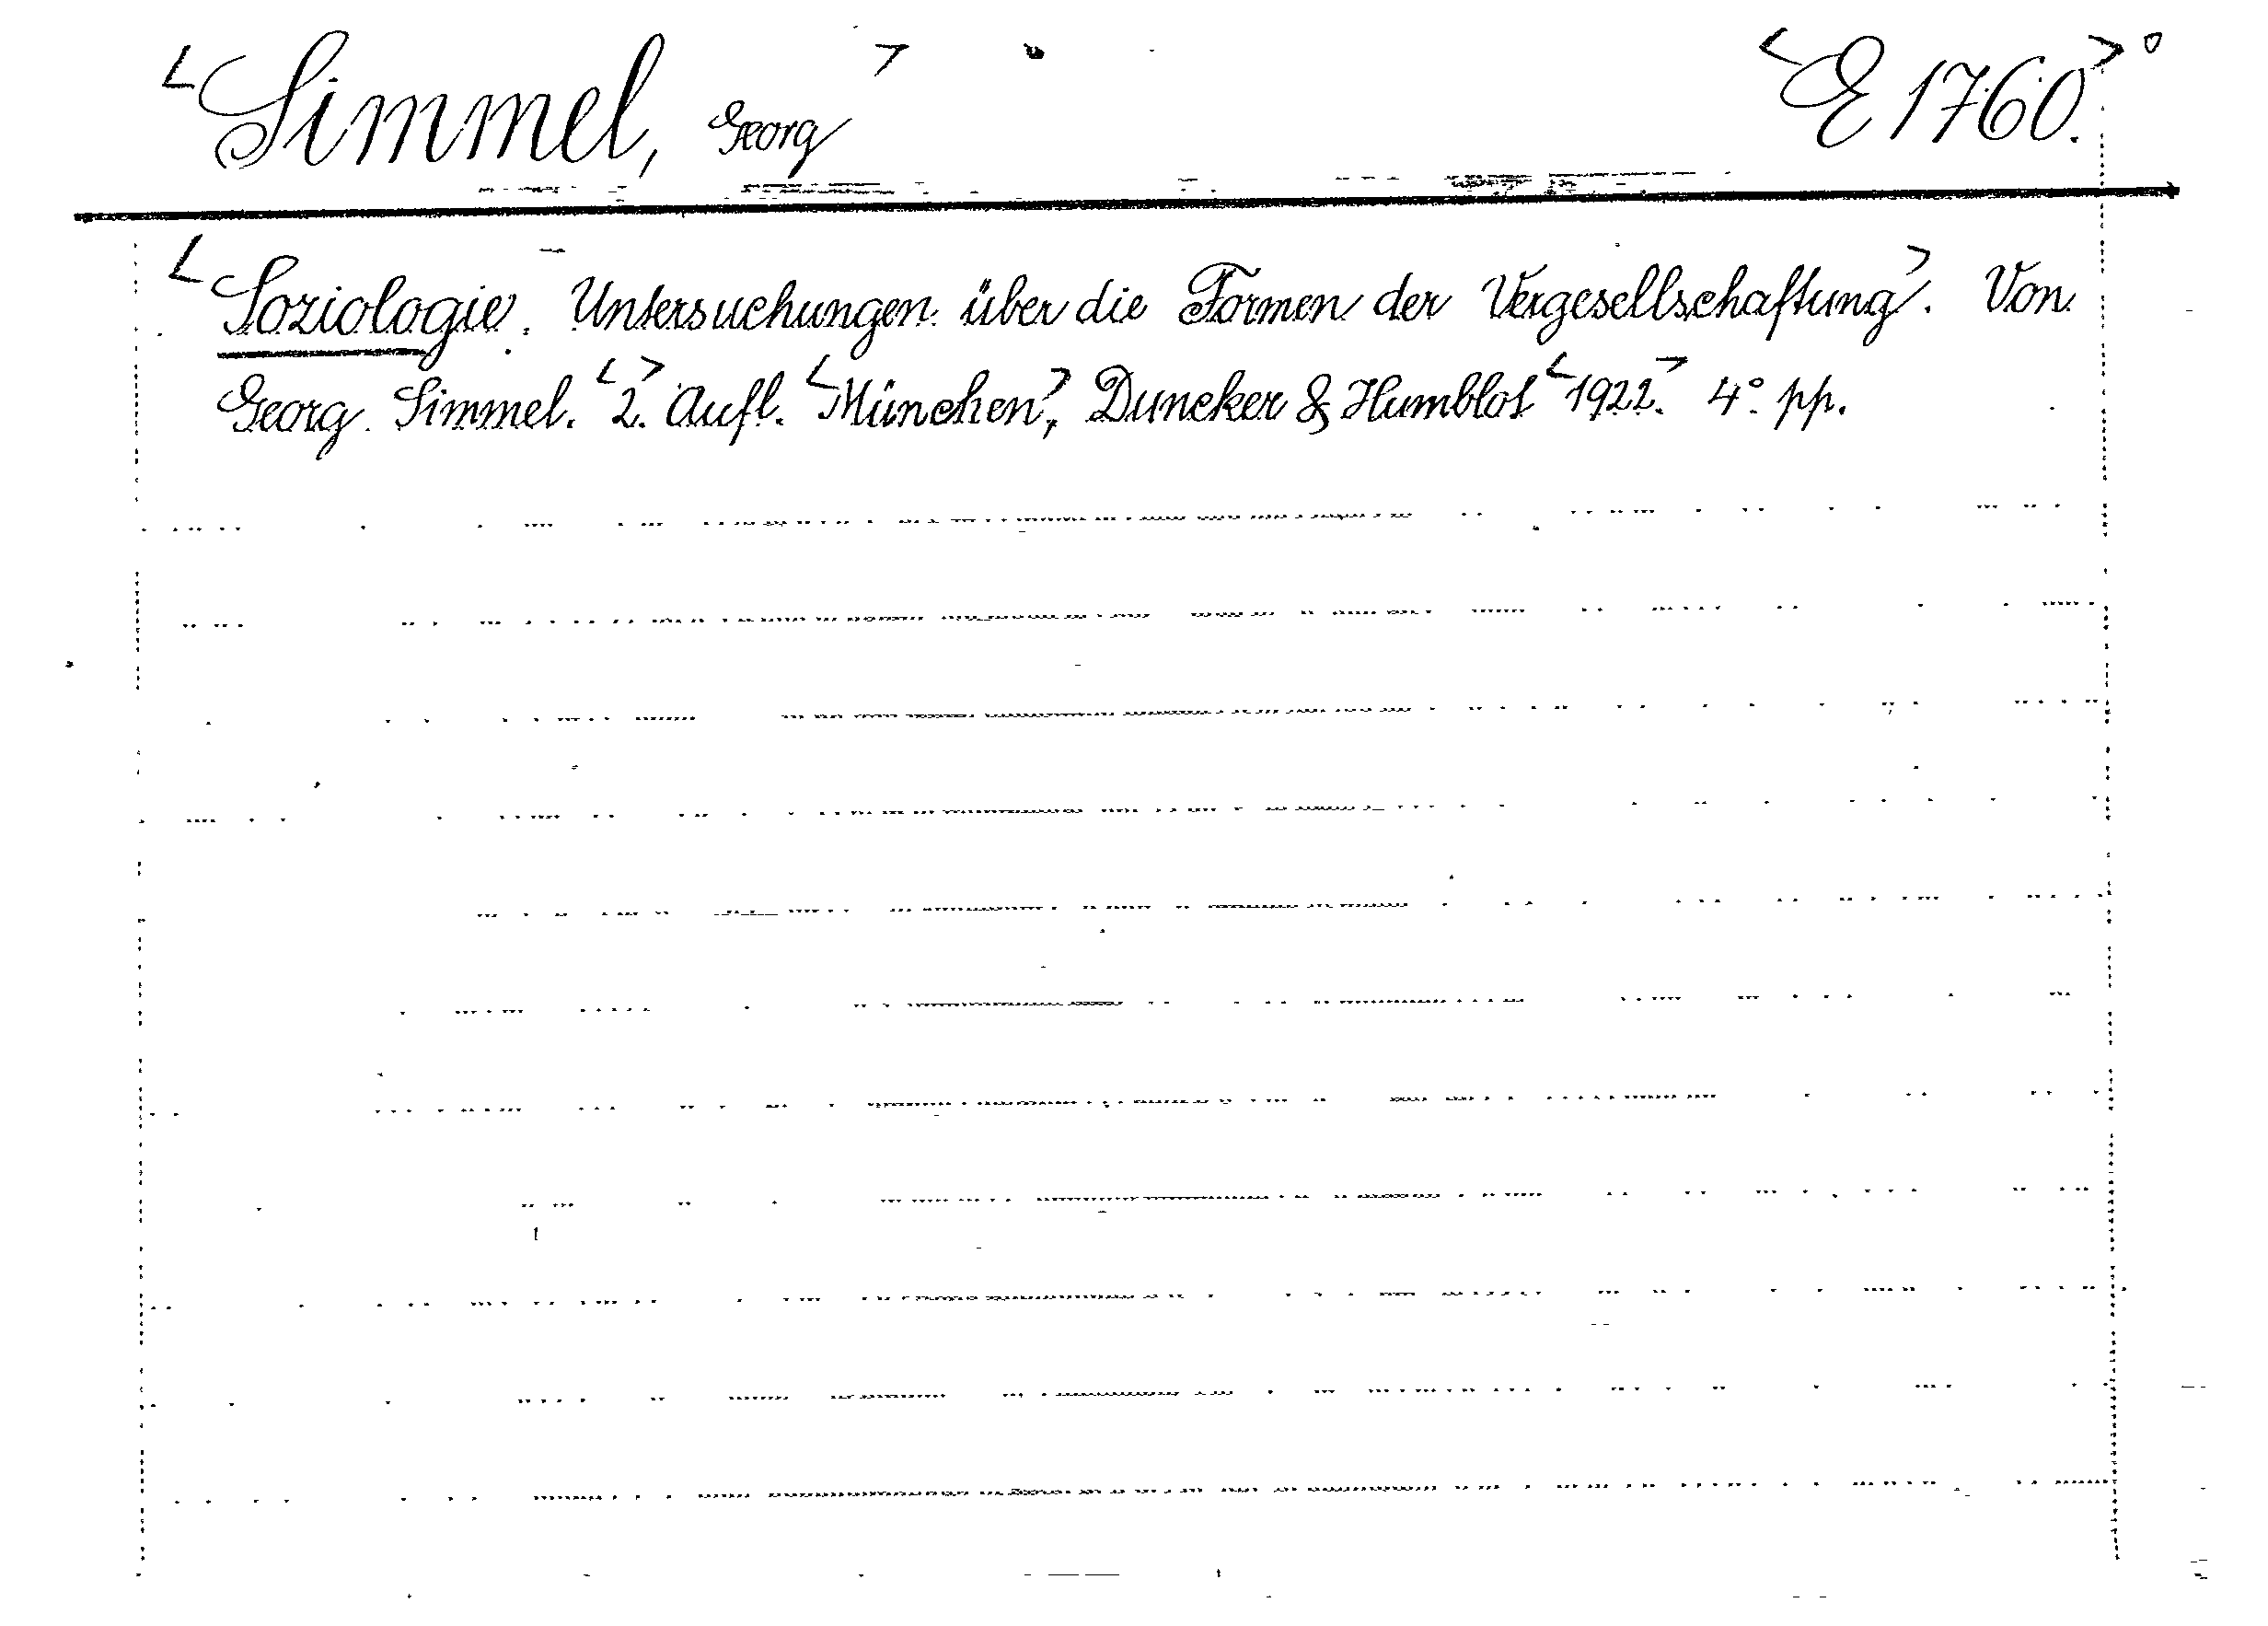 <Simmel, Georg> <E 1760.>°
<Soziologie. Untersuchungen über die Formen der Vergesellschaftung>. Von
Georg Simmel. <2.> Aufl. <München>, Duncker & Humblot <1922.> 4° pp.